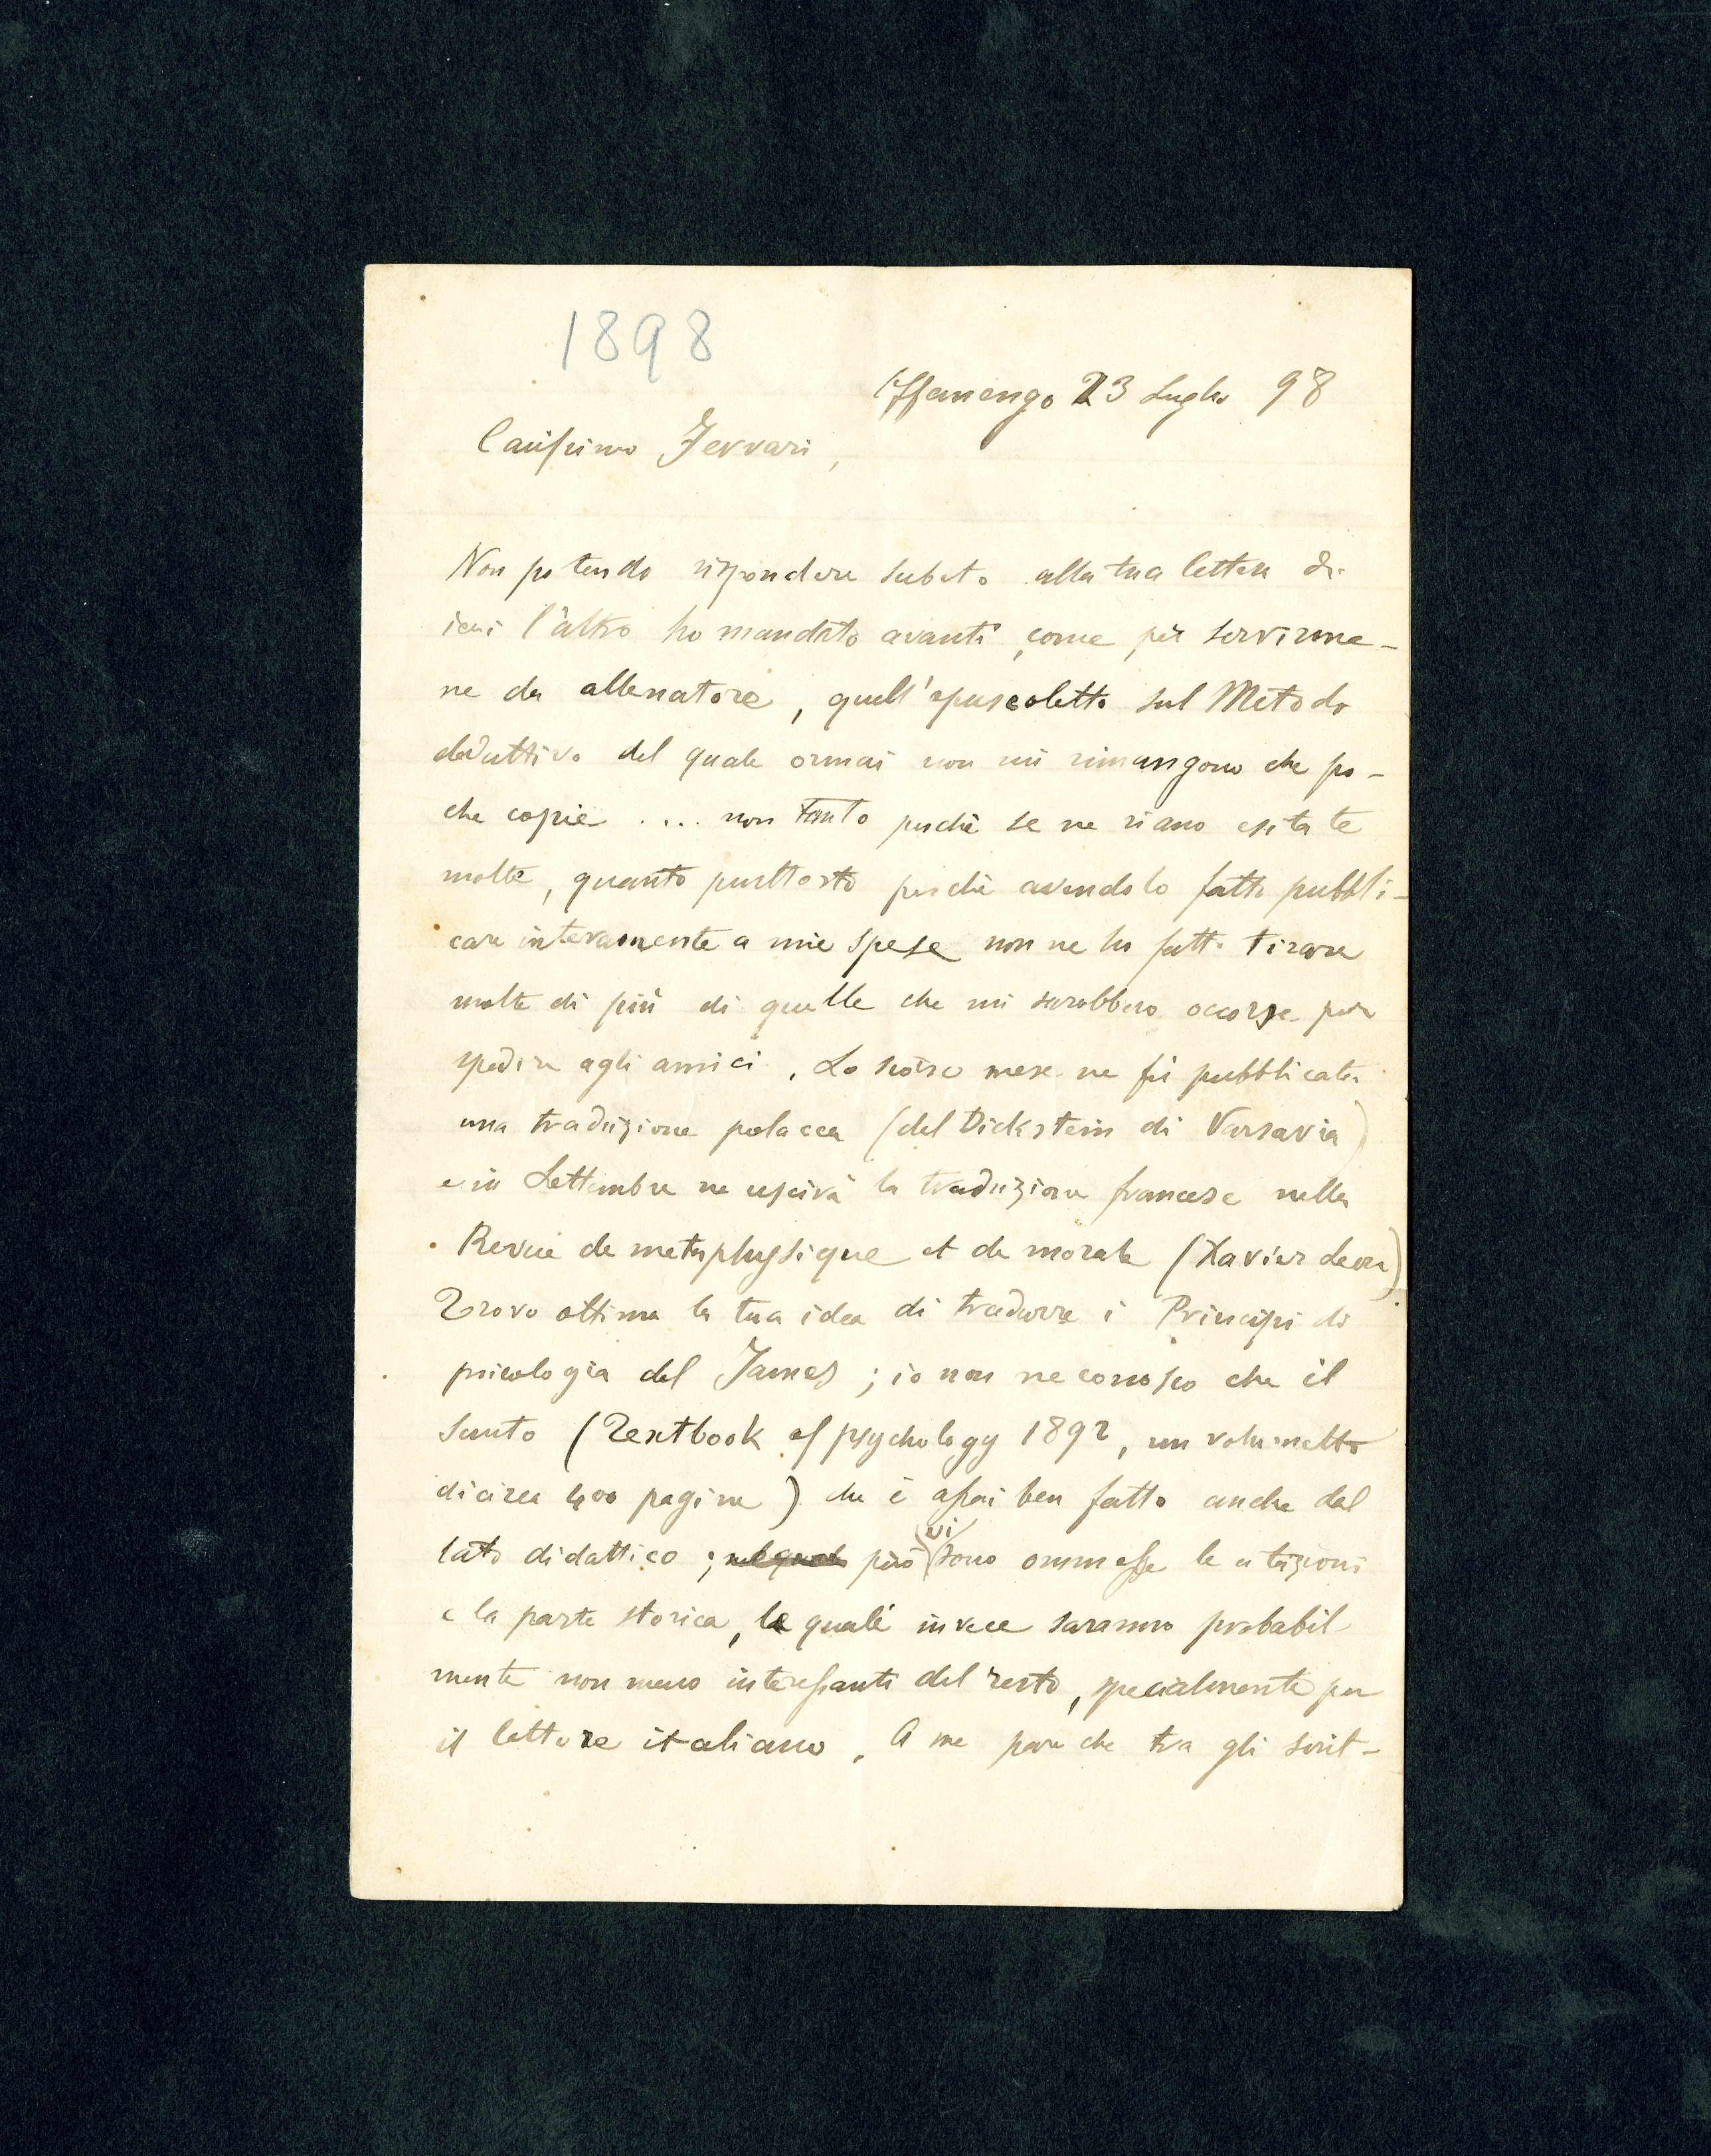 1898
Offanengo 23 Luglio 98
Carissimo Ferrari,
Non potendo rispondere subito alla tua lettera di
ieri l'altro ho mandato avanti, come per servirme-
ne da allenatore, quell'opuscoletto sul Metodo
deduttivo del quale ormai non mi rimangono che po-
che copie .... non tanto perchè se ne siano esitate
molte, quanto piuttosto perchè avendolo fatto pubbli-
care interamente a mie spese non ne ho fatto tirare
molte di più di quelle che mi sarebbero occorse per
spedire agli amici. Lo scorso mese ne fu pubblicata
una traduzione polacca (del Dickstein di Varsavia)
e in Settembre ne uscirà la traduzione francese nella
Revue de metaphysique et de morale (Xavier Leon)
Trovo ottima la tua idea di tradurre i Principi di
psicologia del James; io non ne conosco che il
sunto (Textbook of psychology 1892, un volumetto
di circa 400 pagine) che è assai ben fatto anche dal
lato didattico; nel quale però vi sono ommesse le citazioni
e la parte storica, le quali invece saranno probabil-
mente non meno interessanti del resto, specialmente per
il lettore italiano. A me pare che tra gli scrit-